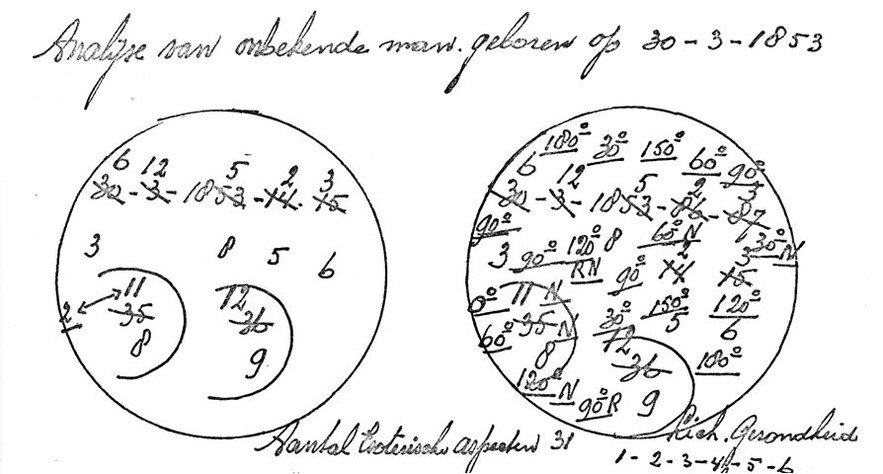 Analyse van onbekende man. geboren op 30-3-1853
6 12 5 2 3
30-3-1853-14-15
3 8 5 6
11 12
2 35 36
8 9
180° 30° 150° 60° 90°
6 12 5 2 3
30-3-1853-86-87
90° 60°N 30°N
3 90° 120° 8 2 3
RN 90° 14 15
0° 11 N 150° 120°
35 N 30° 5 6
60° 12
8 36 180°
120°N 90°R 9
Aantal Esoterische aspecten 31 Lich. Gezondheid
1-2-3-4-5-6